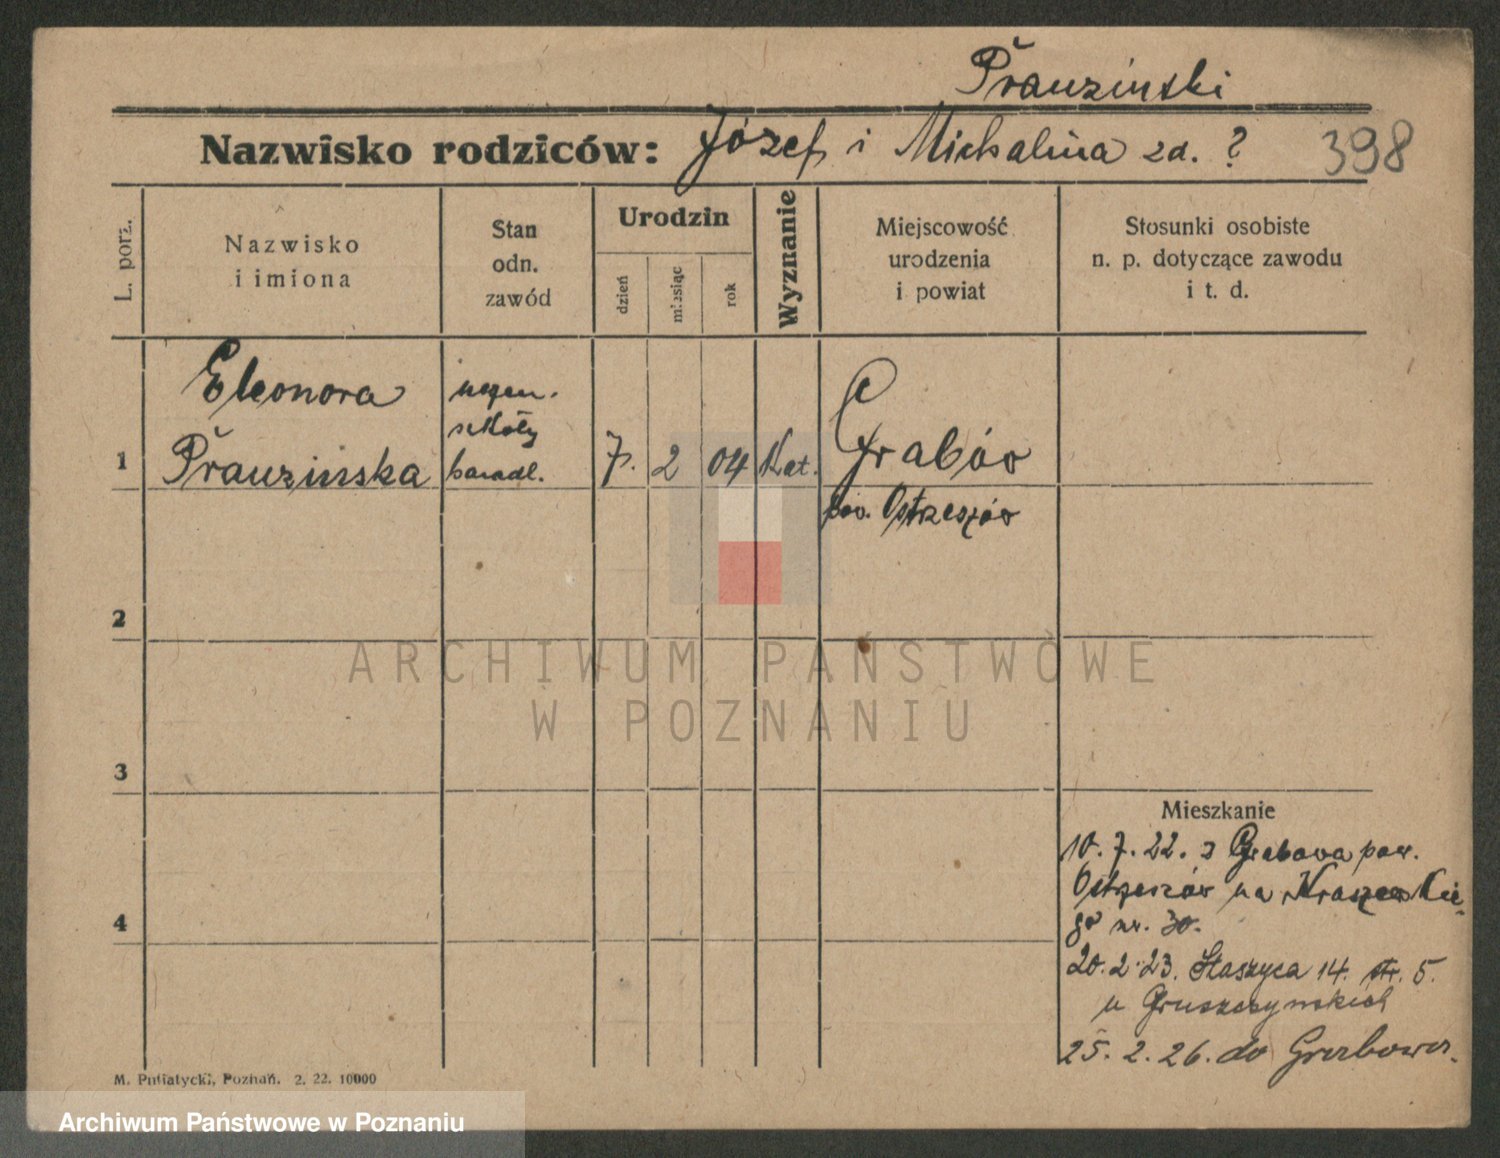 Prauzinski
Nazwisko rodziców: Józef i Michalina zd. ?
398
L. porz.
Nazwisko
i imiona
Stan
odn.
zawód
Urodzin
dzień
miesiąc
rok
Wyznanie
Miejscowość
urodzenia
i powiat
Stosunki osobiste
n. p. dotyczące zawodu
i t. d.
1
Eleonora
Prauzinska
uczen.
szkoły
handl.
7. 2 04 Kat.
Grabów
pow. Ostrzeszów
2
3
4
Mieszkanie
10. 7. 22. z Grabowa pow.
Ostrzeszów na Kraszewskie-
go nr. 30.
20. 2. 23. Staszyca 14. str. 5.
u Gruszczynskich
25. 2. 26. do Grabowa.
M. Putiatycki, Poznań. 2. 22. 10000
ARCHIWUM PAŃSTWOWE
W POZNANIU
Archiwum Państwowe w Poznaniu